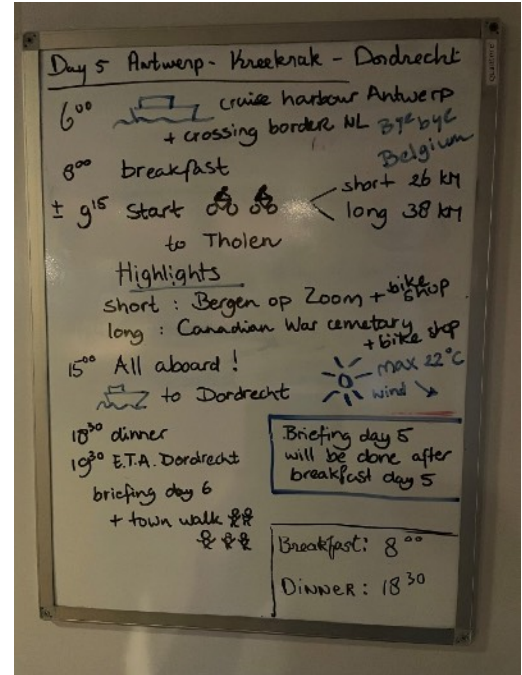 Day 5 Antwerp - Kreekrak - Dordrecht
6⁰⁰ cruise harbour Antwerp
+ crossing border NL Bye bye
Belgium
8⁰⁰ breakfast
± 9¹⁵ Start short 26 KM
long 38 KM
to Tholen
Highlights
short : Bergen op Zoom + bike shop
long : Canadian War cemetary
+ bike shop
15⁰⁰ All aboard !
to Dordrecht
max 22°C
wind ↘
18³⁰ dinner
19³⁰ E.T.A. Dordrecht
briefing day 6
+ town walk
Briefing day 5
will be done after
breakfast day 5
Breakfast: 8⁰⁰
DINNER : 18³⁰